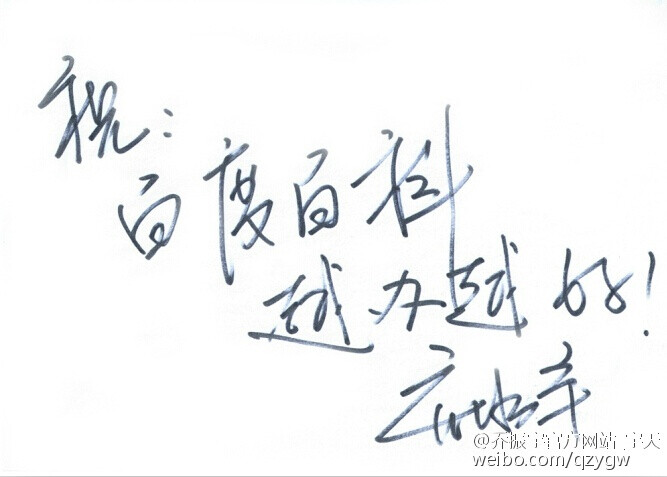 祝：
百度百科
越办越好！
@乔振宇官方网站-宇天
weibo.com/qzygw